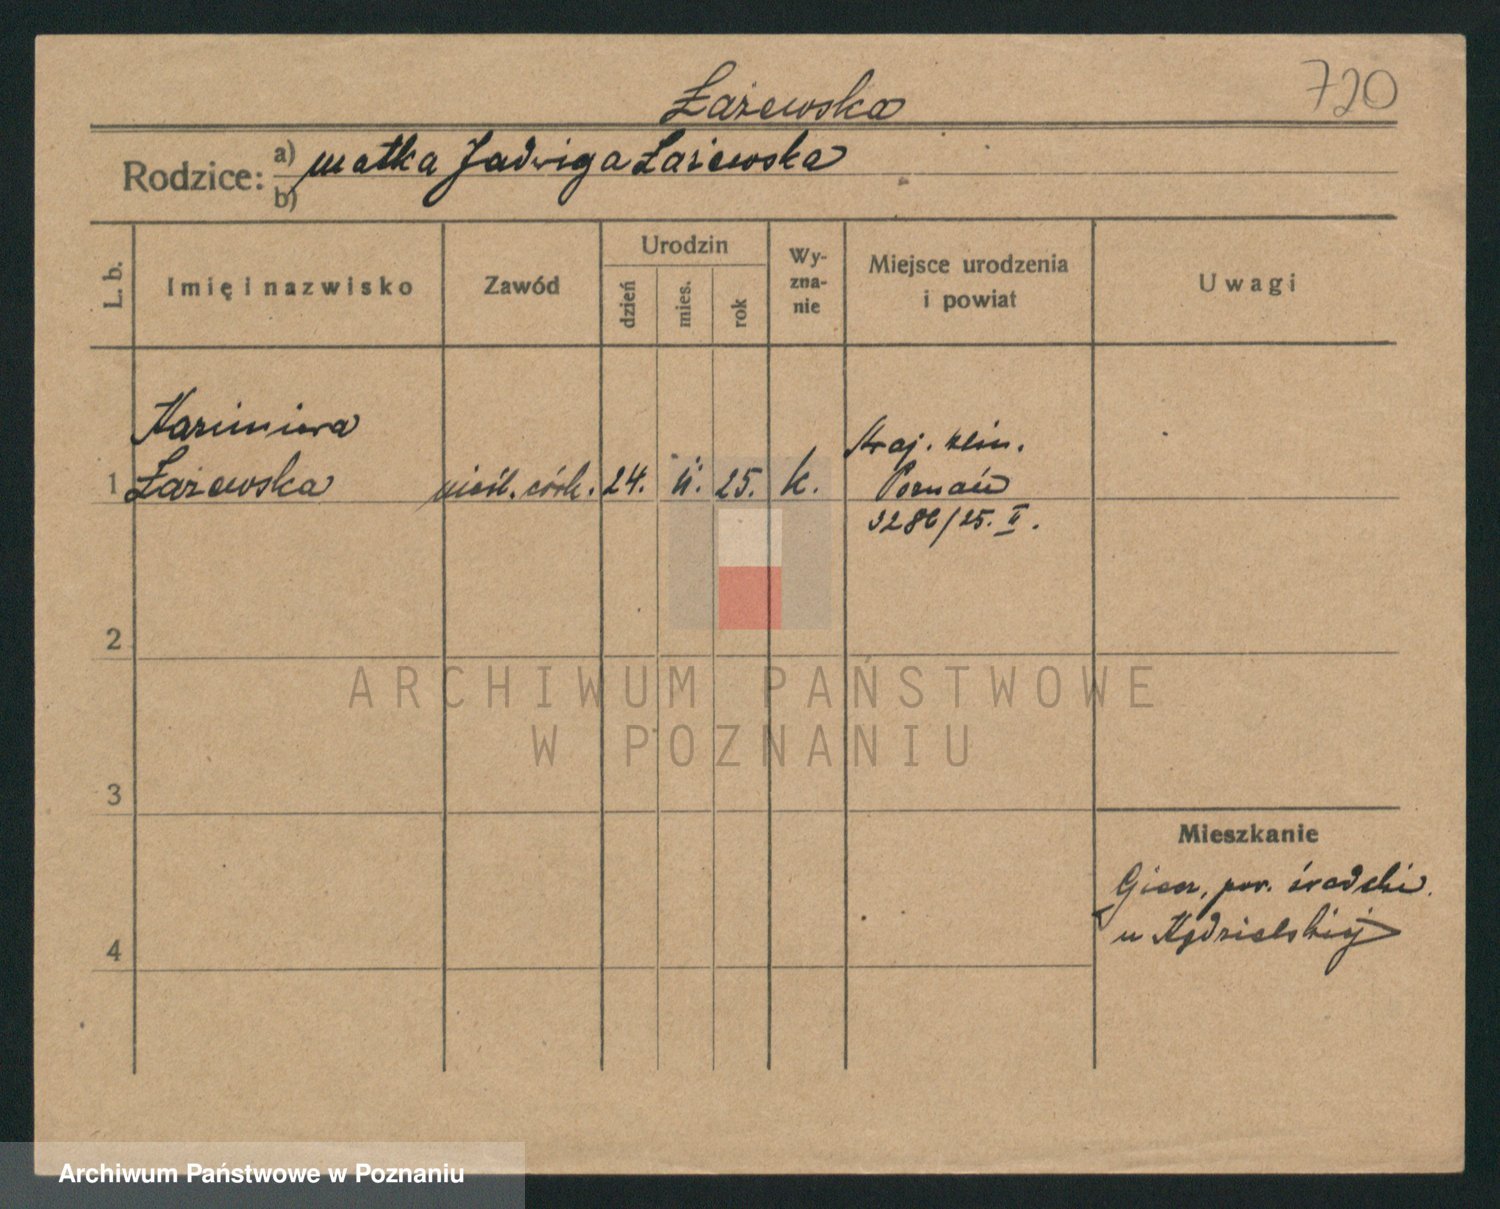 720
Łażewska
Rodzice: a) matka Jadwiga Łażewska
b)
L. b.
Imię i nazwisko
Zawód
Urodzin
dzień
mies.
rok
Wy-
zna-
nie
Miejsce urodzenia
i powiat
Uwagi
Kazimiera
1 Łażewska
nieśl. córk. 24. II. 25. k.
Kraj. klin.
Poznań
/25. II.
2
3
4
Mieszkanie
Giecz, pow. średzki
u Kędzielskiej
ARCHIWUM PAŃSTWOWE
W POZNANIU
Archiwum Państwowe w Poznaniu